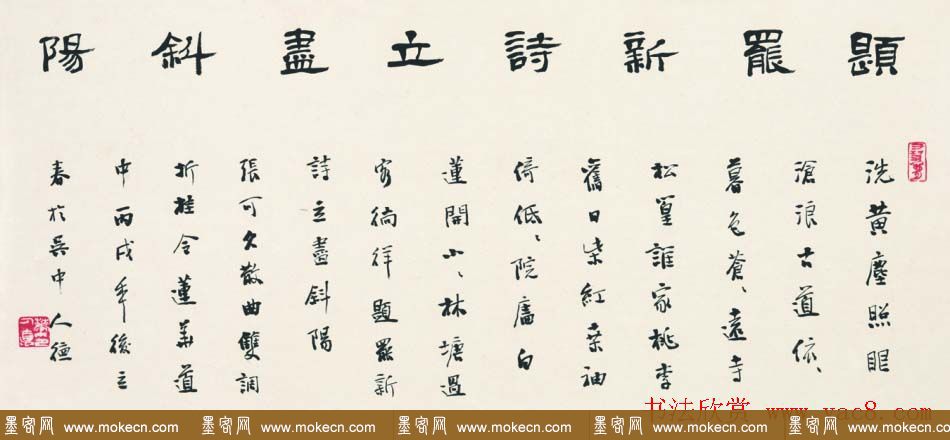 題罷新詩立盡斜陽
洗黃塵照眼
滄浪古道依〻
暮色蒼〻遠寺
松篁誰家桃李
舊日柴紅桑袖
倚低〻院 白
蓮開小〻林塘過
客徜徉題罷新
詩立盡斜陽
張可久散曲雙調
折桂令蓮華道
中丙戌年後立
春於吳中人德
书法欣赏 www.yac8.com
墨客网 www.mokecn.com 墨客网 www.mokecn.com 墨客网 www.mokecn.com 墨客网 www.mokecn.com 墨客网 www.mokecn.com